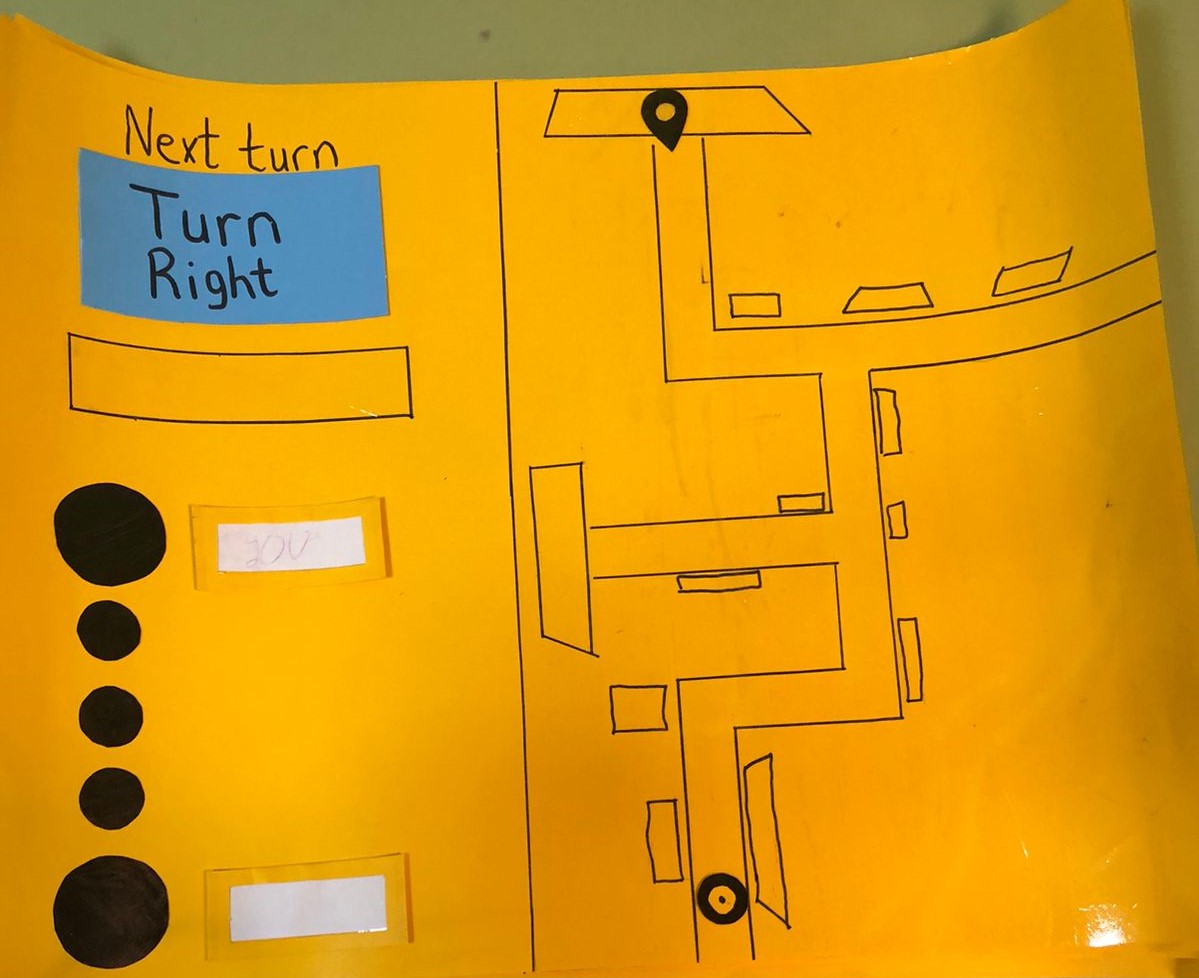 Next turn
Turn
Right
you